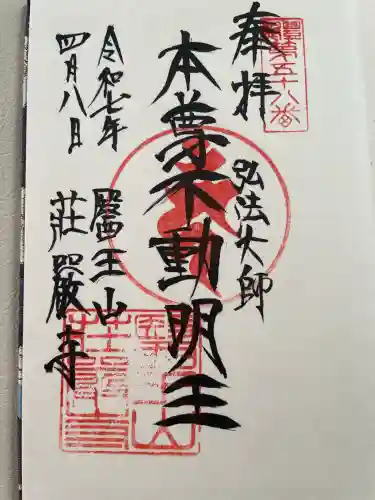 奉拝
弘法大師
本尊不動明王
醫王山
荘嚴寺
令和七年
四月八日